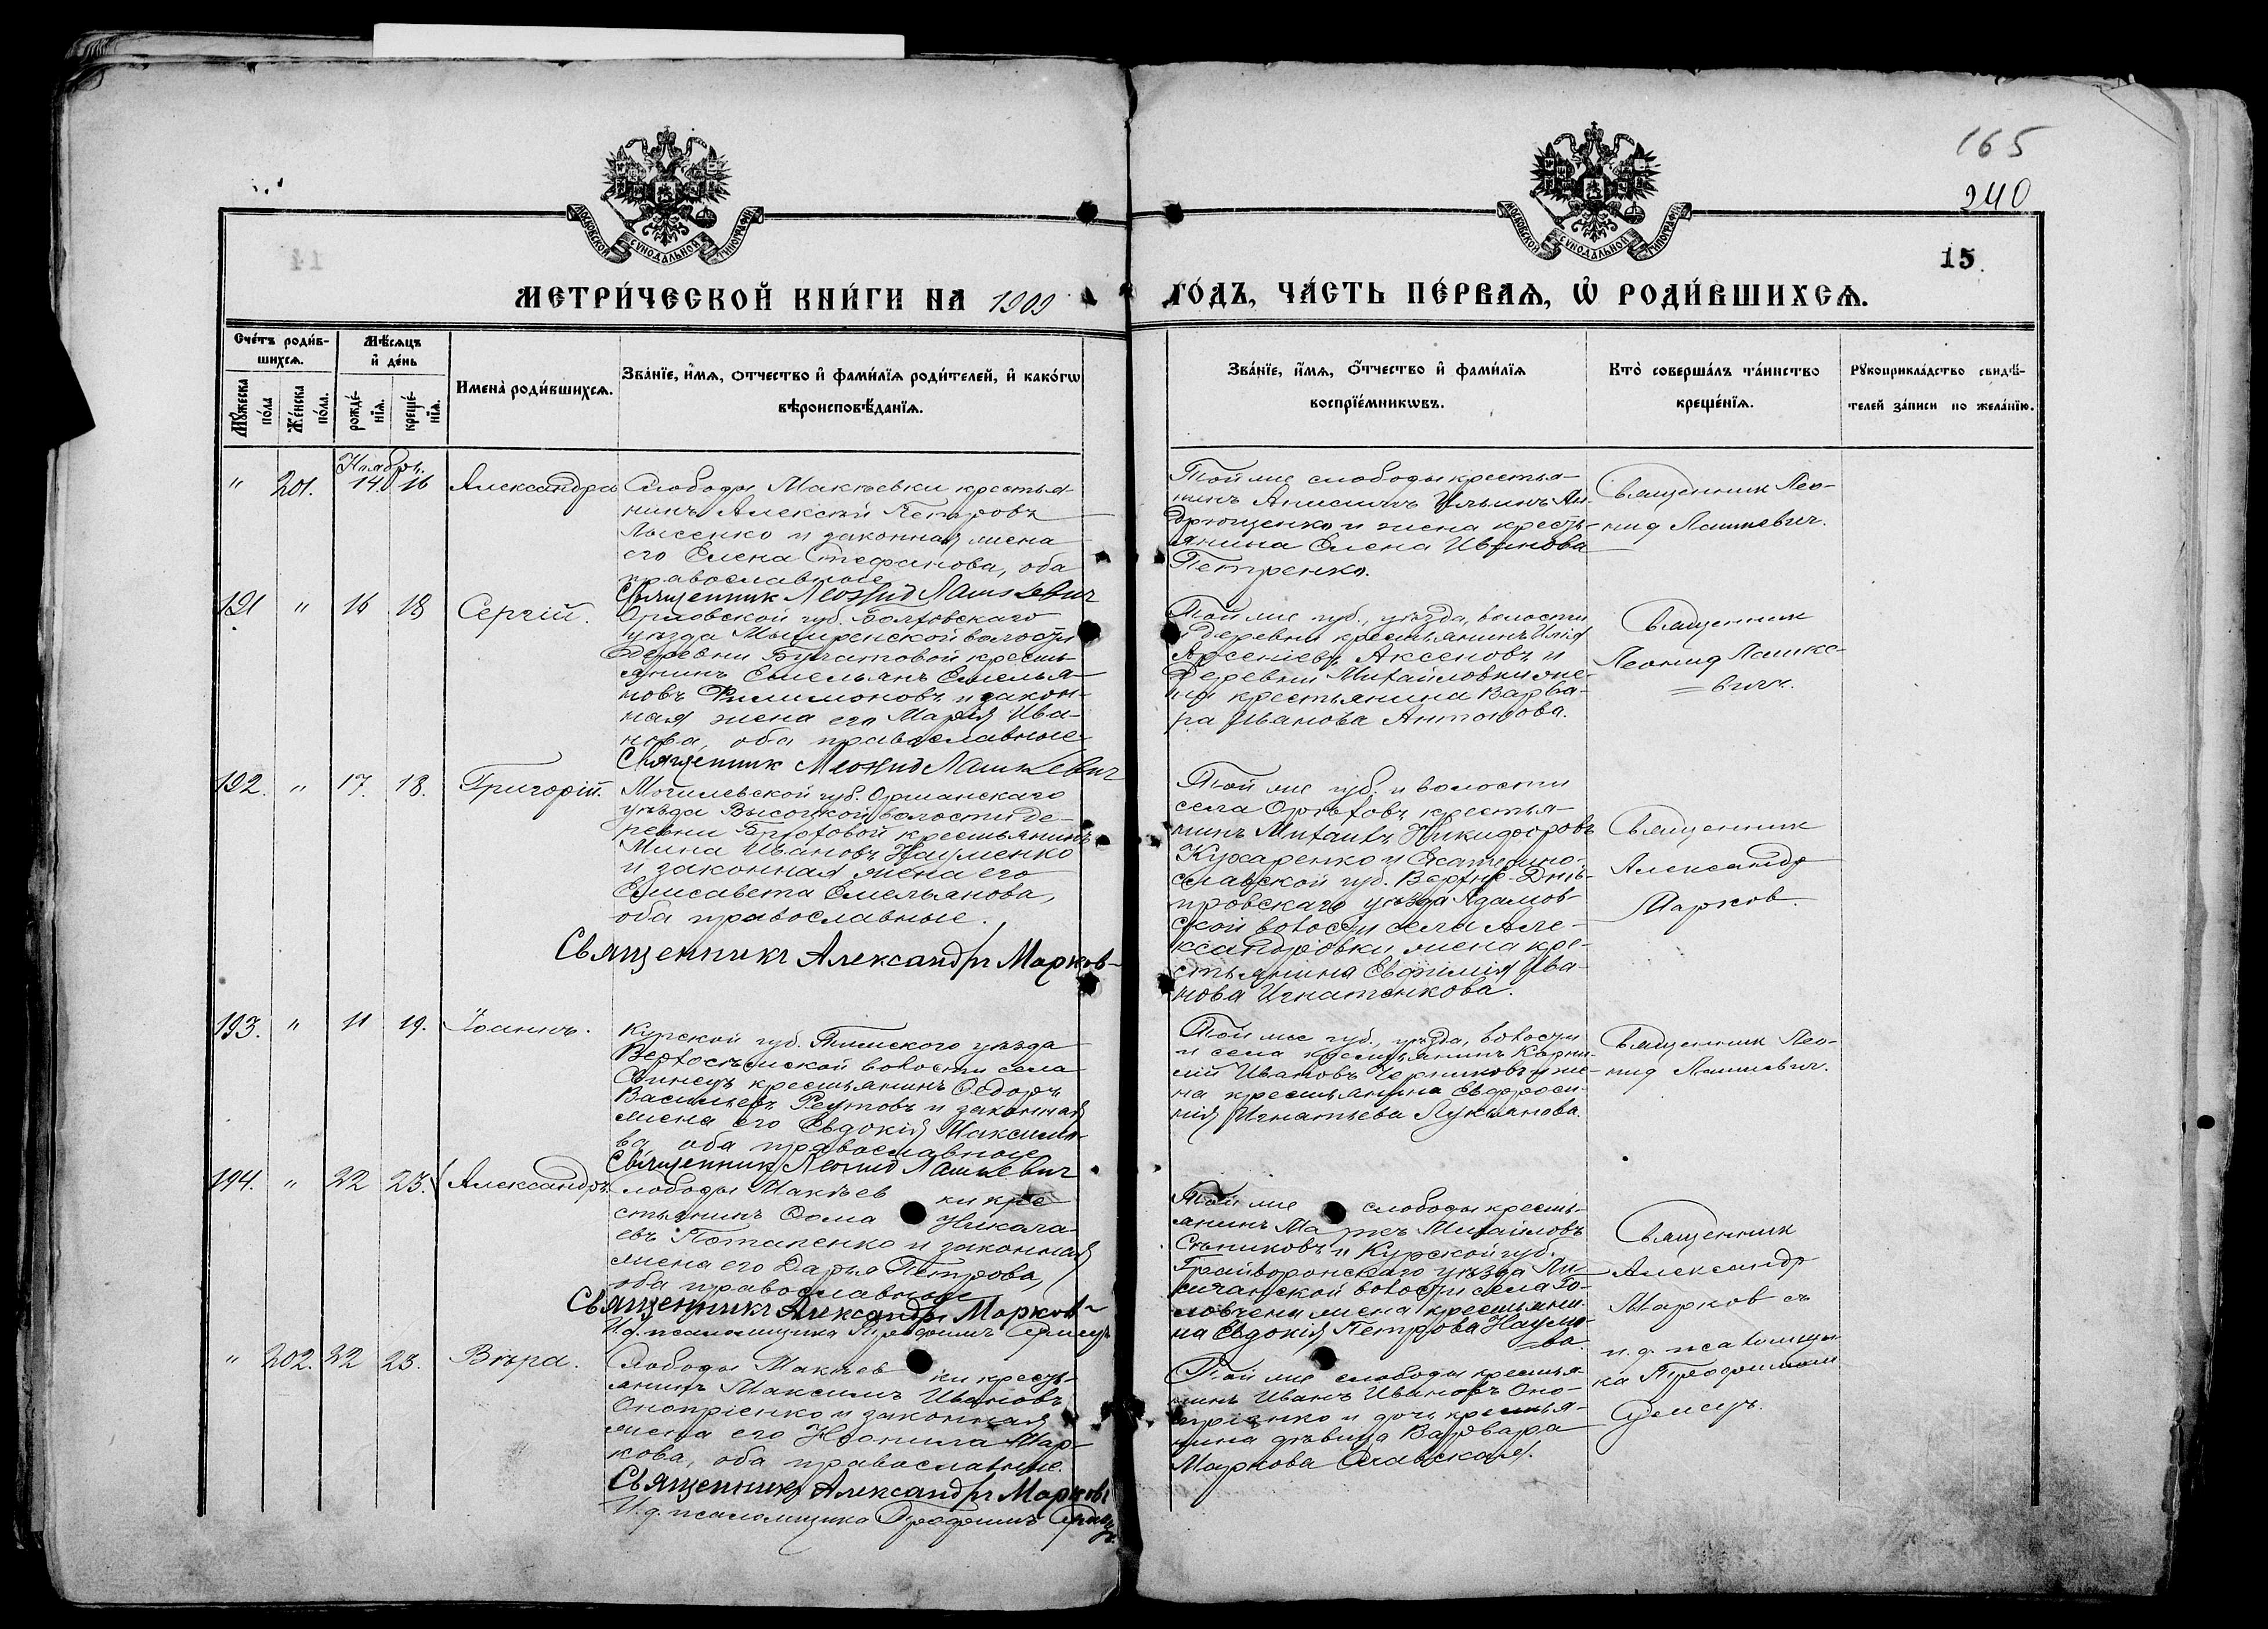 165
240
15
МОСКОВСКОЙ СѴНОДАЛЬНОЙ ТИПОГРАФІИ
МОСКОВСКОЙ СѴНОДАЛЬНОЙ ТИПОГРАФІИ
МЕТРИ́ЧЕСКОЙ КНИ́ГИ НА 1909 ГО́ДЪ, ЧА́СТЬ ПЕ́РВАѦ, Ѡ҆ РОДИ́ВШИХСѦ.
Сче́тъ роди́в-
шихсѧ.
Мꙋ́жеска
по́ла
Же́нска
по́ла.
Мѣ́сѧцъ
и҆ де́нь
рожде́-
нїѧ.
креще́-
нїѧ.
Имена̀ роди́вшихсѧ.
Зва́нїе, и҆́мѧ, ѻ҆́тчество и҆ фами́лїѧ роди́телей, и҆ како́гѡ
вѣроисповѣ́данїѧ.
Зва́нїе, и҆́мѧ, ѻ҆́тчество и҆ фами́лїѧ
воспрїе́мникѡвъ.
Кто̀ соверша́лъ та́инство
креще́нїѧ.
Рꙋкоприкла́дство свидѣ́-
телей за́писи по жела́нїю.
Ноябрь.
" 201. 14. 16 Александра
Слободы Макѣевки крестья-
нинъ Алексѣй Петровъ
Лысенко и законная жена
его Елена Стефанова, оба
православные
Священник Леонид Лашкевич
Той же слободы крестья-
нинъ Анисимъ Ильинъ Ан-
дрющенко и жена кресть-
янина Елена Иванова
Петренко.
Священник Лео-
нид Лашкевич.
191 " 16 18 Сергій.
Орловской губ. Болховского
уѣзда
деревни крестья-
янинъ Емельянъ Емелья-
новъ Филимоновъ и закон-
ная жена его Марія Ива-
нова, оба православные
Священник Леонид Лашкевич
Той же губ., уѣзда, волости
и деревни крестьянинъ Илія
Арсеніевъ Аксеновъ и
деревни Михайловки же-
на крестьянина Варва-
ра Иванова Антонова.
Священник
Леонид Лашке-
=вич.
192. " 17. 18. Григорій.
Могилевской губ. Оршанскаго
уѣзда Высоцкой волости де-
ревни крестьянинъ
Мина Ивановъ Науменко
и законная жена его
Елисавета Емельянова,
оба православные.
Священникъ Александръ Марков
Той же губ. и волости
села крестья-
нинъ Михаилъ Никифоровъ
Кухаренко и Екатерино-
славской губ. Верхне-Днѣ-
провскаго уѣзда Адамов-
ской волости села Але-
ксандровки жена кре-
стьянина Евфимія Ива-
нова Игнатенкова.
Священник
Александр
Марков.
193. " 11 19. Іоаннъ.
Курской губ. Тимского уѣзда
Верхосемской волости села
крестьянинъ Ѳедоръ
Васильевъ Реутовъ и законная
жена его Евдокія Максимо-
ва, оба православные
Священник Леонид Лашкевич
Той же губ., уѣзда, волости
и села крестьянинъ Корни-
лій Ивановъ Черниковъ и же-
на крестьянина Евфроси-
нія Игнатьева Лукьянова.
Священник Лео-
нид Лашкевич.
194. " 22 23. Александръ.
Слободы Макѣев ки кре
стьянинъ Ѳома Никола-
евъ Потапенко и законная
жена его Дарья Петрова,
оба православные
Священникъ Александръ Марков
И. д. псаломщика Трофимъ
Той же слободы кресть-
янинъ Маркъ Михайловъ
Сѣниковъ и Курской губ.
Грайворонскаго уѣзда Ли-
сичанской волости села Го-
ловчени жена крестьяни-
на Евдокія Петрова Наумо-
=ва.
Священник
Александр
Марков съ
и. д. псаломщи-
ка Трофимом
" 202. 22 23. Вѣра.
Слободы Макѣев ки кресть-
янинъ Максимъ Ивановъ
Оноприенко и законная
жена его Неонила Мар-
кова, оба православные.
Священникъ Александръ Марковъ
И. д. псаломщика Трофимъ
Той же слободы крестья-
нинъ Иванъ Ивановъ Оно-
приенко и дочь крестья-
нина дѣвица Варвара
Маркова